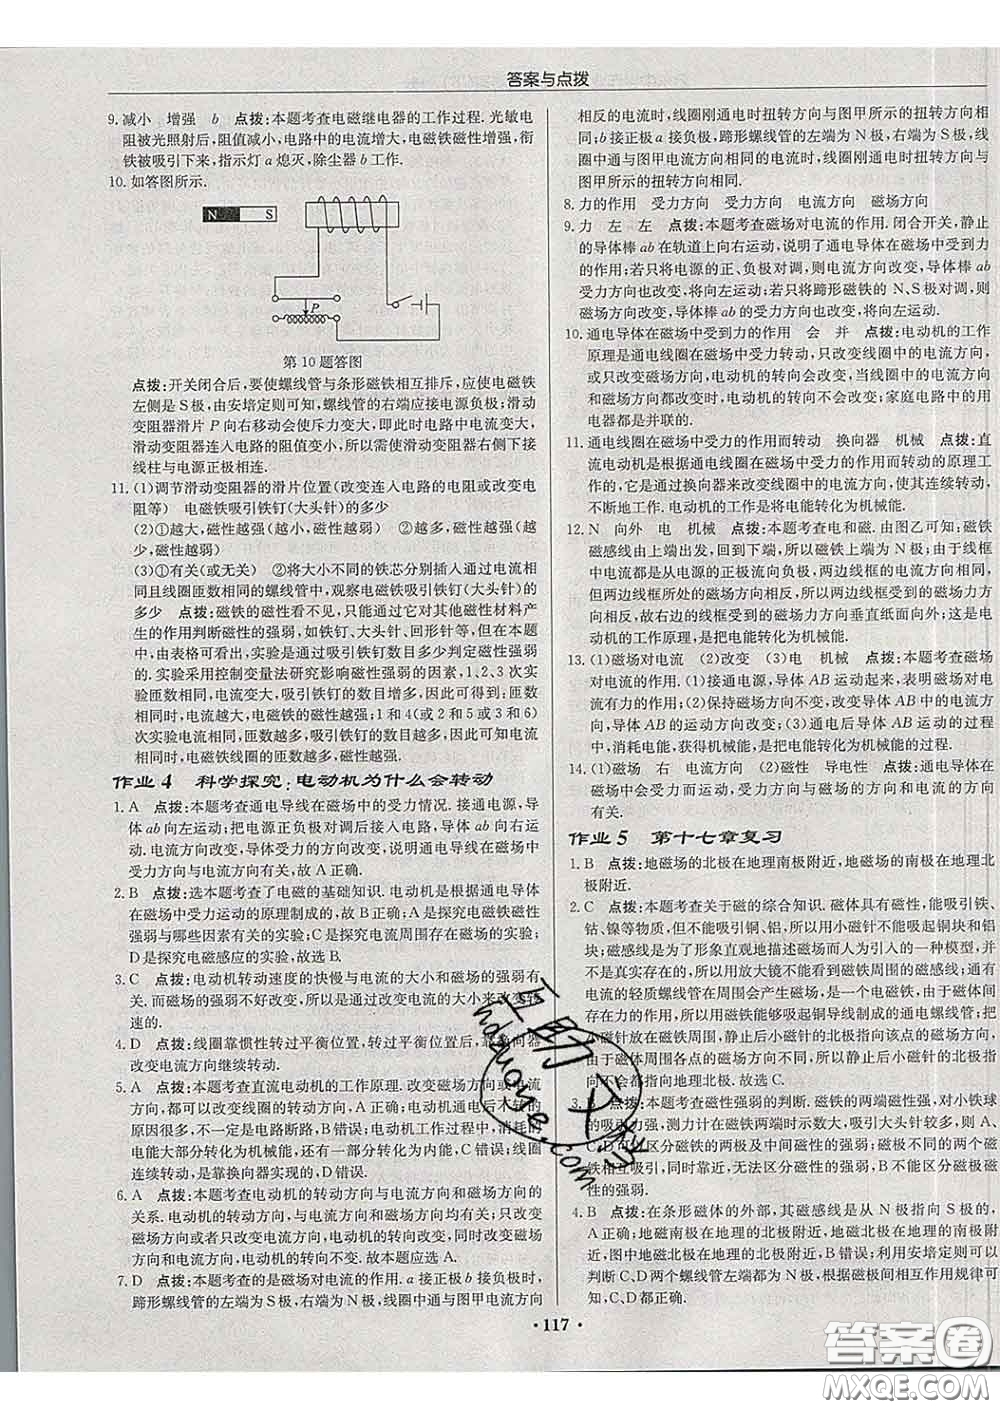 答案与点拨
9. 减小　增强　b　点拨:本题考查电磁继电器的工作过程. 光敏电
阻被光照射后,阻值减小,电路中的电流增大,电磁铁磁性增强,衔
铁被吸引下来,指示灯 a 熄灭,除尘器 b 工作.
10. 如答图所示.
N S
P
第 10 题答图
点拨:开关闭合后,要使螺线管与条形磁铁相互排斥,应使电磁铁
左侧是 S 极,由安培定则可知,螺线管的右端应接电源负极;滑动
变阻器滑片 P 向右移动会使斥力变大,即此时电路中电流变大,
滑动变阻器连入电路的阻值变小,所以需使滑动变阻器右侧下接
线柱与电源正极相连.
11. (1)调节滑动变阻器的滑片位置(改变连入电路的电阻或改变电
阻等)　电磁铁吸引铁钉(大头针)的多少
(2)①越大,磁性越强(越小,磁性越弱)　②越多,磁性越强(越
少,磁性越弱)
(3)①有关(或无关)　②将大小不同的铁芯分别插入通过电流相
同且线圈匝数相同的螺线管中,观察电磁铁吸引铁钉(大头针)的
多少　点拨:磁铁的磁性看不见,只能通过它对其他磁性材料产
生的作用判断磁性的强弱,如铁钉、大头针、回形针等,但在本题
中,由表格可看出,实验是通过吸引铁钉数目多少判定磁性强弱
的. 实验采用控制变量法研究影响磁性强弱的因素,1、2、3 次实
验匝数相同,电流变大,吸引铁钉的数目增多,因此可得出:匝数
相同时,电流越大,电磁铁的磁性越强;1 和 4(或 2 和 5 或 3 和 6)
次实验电流相同,匝数越多,吸引铁钉的数目越多,因此可知电流
相同时,电磁铁线圈的匝数越多,磁性越强.
作业 4　科学探究:电动机为什么会转动
1. A　点拨:本题考查通电导线在磁场中的受力情况. 接通电源,导
体 ab 向左运动;把电源正负极对调后接入电路,导体 ab 向右运
动,电流的方向改变,导体运动方向改变,说明通电导体在磁场中
受力方向与电流方向有关,故 A 正确.
2. B　点拨:选本题考查了电磁的基础知识. 电动机是根据通电导体
在磁场中受力运动的原理制成的,故 B 正确;A 是探究电磁铁磁性
强弱与哪些因素有关的实验;C 是探究电流周围存在磁场的实验;
D 是探究电磁感应的实验,故选 B.
3. C　点拨:电动机转动速度的快慢与电流的大小和磁场的强弱有
关. 而磁场的强弱不好改变,所以是通过改变电流的大小来改变转
速的.
4. D　点拨:线圈靠惯性转过平衡位置,转过平衡位置后,靠换向器
改变电流方向继续转动.
5. A　点拨:本题考查直流电动机的工作原理. 改变磁场方向或电流
方向,都可以改变线圈的转动方向,A 正确;电动机通电后不转的有
很多原因,不一定是电路断路,B 错误;电动机工作过程中,消耗的
电能大部分转化为机械能,还有一部分转化为内能,C 错误;线圈
连续转动,是靠换向器实现的,D 错误.
6. A　点拨:本题考查电动机的转动方向与电流方向和磁场方向的
关系. 电动机的转动方向,与电流方向和磁场方向都有关,只改变
磁场方向或者只改变电流方向,电动机转动方向改变,同时改变磁场
方向和电流方向,电动机的转向不变. 故本题应选 A.
7. D　点拨:本题考查的是磁场对电流的作用. a 接正极 b 接负极时,
蹄形螺线管的左端为 S 极,右端为 N 极,线圈中通与图甲电流方向
相反的电流时,线圈刚通电时扭转方向与图甲所示的扭转方向相
同;b 接正极 a 接负极,蹄形螺线管的左端为 N 极,右端为 S 极,线
圈中通与图甲电流方向相同的电流时,线圈刚通电时扭转方向与
图甲所示的扭转方向相同.
8. 力的作用　受力方向　受力方向　电流方向　磁场方向
9. 力　左　左　点拨:本题考查磁场对电流的作用. 闭合开关,静止
的导体棒 ab 在轨道上向右运动,说明了通电导体在磁场中受到力
的作用;若只将电源的正、负极对调,则电流方向改变,导体棒 ab
受力方向也改变,将向左运动;若只将蹄形磁铁的 N、S 极对调,则
磁场方向改变,导体棒 ab 的受力方向也改变,将向左运动.
10. 通电导体在磁场中受到力的作用　会　并　点拨:电动机的工作
原理是通电线圈在磁场中受力转动,只改变线圈中的电流方向,
或只改变磁场方向,电动机的转向会改变,当线圈中的电流方向
和磁场方向都改变时,电动机的转向不会改变;家庭电路中的用
电器都是并联的.
11. 通电线圈在磁场中受力的作用而转动　换向器　机械　点拨:直
流电动机是根据通电线圈在磁场中受力的作用而转动的原理工
作的,它是通过换向器来改变线圈中的电流方向,使其连续转动,
不断地工作. 电动机的工作是将电能转化为机械能.
12. N　向外　电　机械　点拨:本题考查电和磁. 由图乙可知,磁铁
磁感线由上端出发,回到下端,所以磁铁上端为 N 极;由于线框
中电流都是从电源的正极流向负极,两边线框的电流方向相反,
但两边线框所处的磁场方向相反,所以两边线框受到的磁场力方向
相同,故右边的线框受到的磁场力方向垂直纸面向外;这是电
动机的工作原理,是把电能转化为机械能.
13. (1)磁场对电流　(2)改变　(3)电　机械　点拨:本题考查磁场
对电流的作用. (1)接通电源,导体 AB 运动起来,表明磁场对电
流有力的作用;(2)保持磁场方向不变,改变导体 AB 中的电流方
向,导体 AB 的运动方向改变;(3)通电后导体 AB 运动的过程
中,消耗电能,获得机械能,是电能转化为机械能的过程.
14. (1)磁场　右　电流方向　(2)磁性　导电性　点拨:通电导体在
磁场中会受力而运动,受力的方向与磁场方向和电流的方向
有关.
作业 5　第十七章复习
1. B　点拨:地磁场的北极在地理南极附近,地磁场的南极在地理北
极附近.
2. C　点拨:本题考查关于磁的综合知识. 磁体具有磁性,能吸引铁、
钴、镍等物质,但不能吸引铜、铝,所以小磁针不能吸引铜块和铝
块;磁感线是为了形象直观地描述磁场而人为引入的一种模型,并
不是真实存在的,所以用放大镜不能看到磁铁周围的磁感线;通有
电流的轻质螺线管在周围会产生磁场,是一个电磁铁,由于磁体间
存在力的作用,所以用磁铁能够吸起铜导线制成的通电螺线管;将
小磁针放在磁铁周围,静止后小磁针的北极指向该点的磁场方向,
由于磁体周围各点的磁场方向不同,所以静止后小磁针的北极
不会都指向地球北极. 故选 C.
3. B　点拨:本题考查磁性强弱的判断. 磁铁的两端磁性强,对小铁球
的吸力强,测力计在磁铁两端时示数大,吸引大头针较多,所以 A、
C、D 可区分磁铁的两极及中间磁性的强弱;磁极不同的两个磁
铁相互吸引,同时贴近,无法区分磁性的强弱,故 B 项不能区分磁性
的强弱.
4. B　点拨:在条形磁体的外部,其磁感线是从 N 极指向 S 极的,
A 正确;地磁南极在地理的北极附近,地磁北极在地理的南极附
近,图中地磁北极在地理的北极附近,B 错误;利用安培定则可以
判断 C、D 中通电螺线管左端都为 N 极,根据磁极间相互作用规律可
知,C、D 都正确.
· 117 ·
互助文
hdzuoye.com
答案圈
MXQE.COM